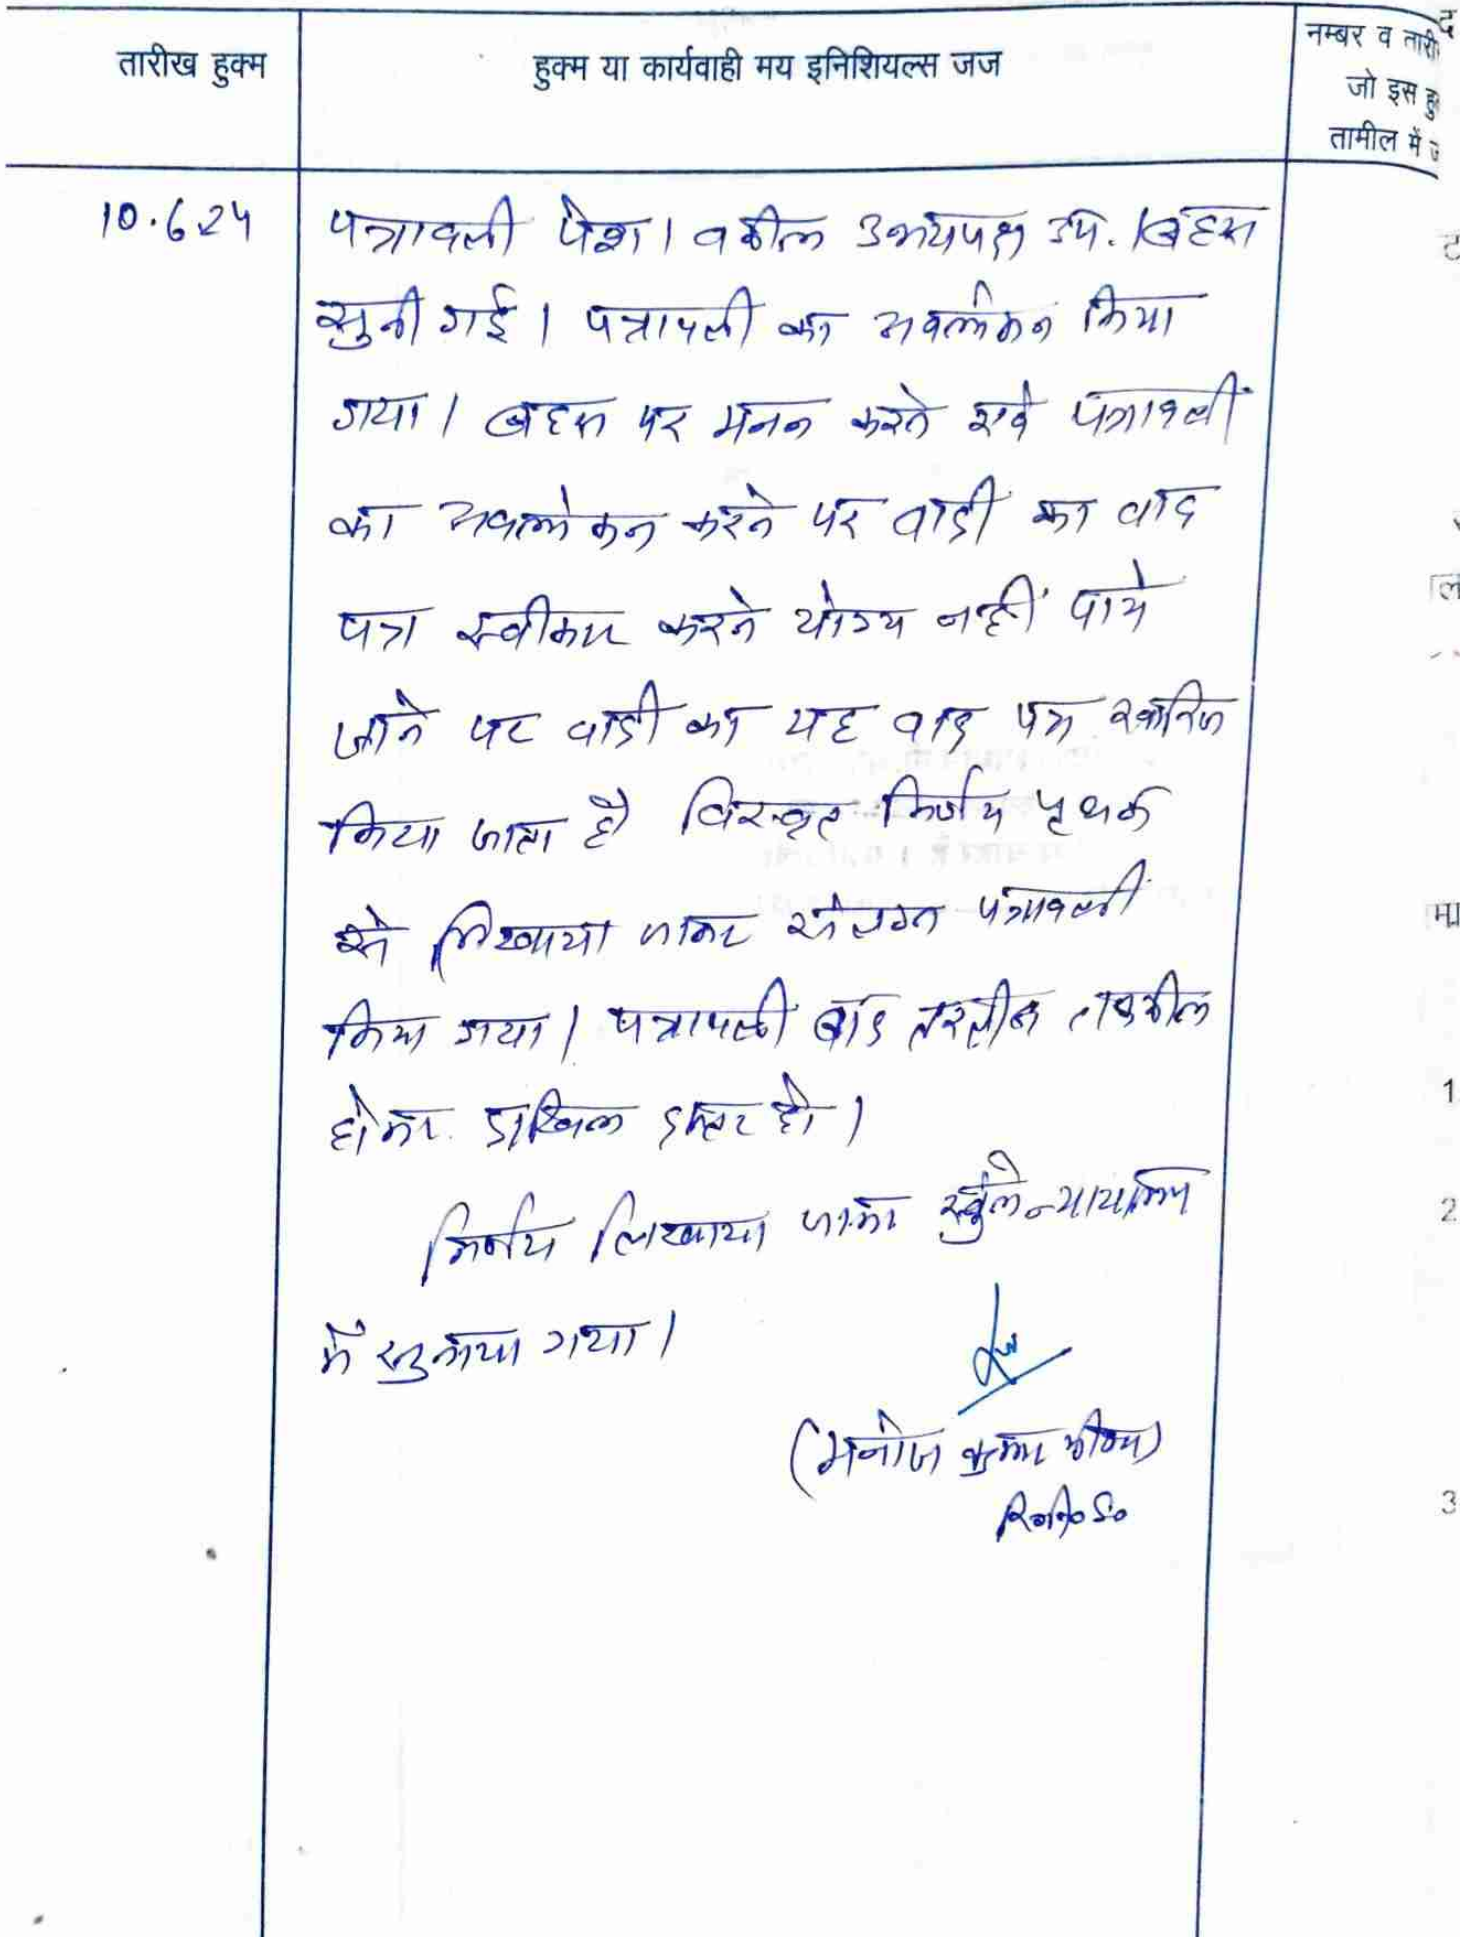 तारीख हुक्म
हुक्म या कार्यवाही मय इनिशियल्स जज
नम्बर व तारी
जो इस हु
तामील में ज
10.6.24
पत्रावली पेश। वकील उभयपक्ष उप.। बहस
सुनी गई। पत्रावली का अवलोकन किया
गया। बहस पर मनन करने एवं पत्रावली
का अवलोकन करने पर वादी का वाद
पत्र स्वीकार करने योग्य नहीं पाये
जाने पर वादी का यह वाद पत्र खारिज
किया जाता है विस्तृत निर्णय पृथक
से लिखाया जाकर संलग्न पत्रावली
किया गया। पत्रावली बाद तरतीब तकमील
होकर दाखिल दफ्तर हो।
निर्णय लिखाया जाकर खुले न्यायालय
में सुनाया गया।
(मनोज कुमार
1
2
3